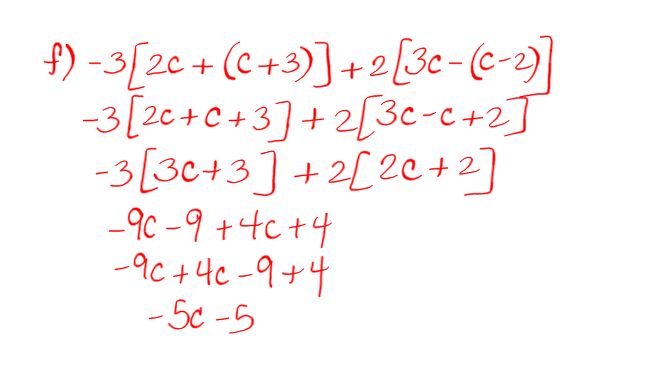 f) -3[2c + (c+3)] + 2[3c-(c-2)]
-3[2c+c+3] + 2[3c-c+2]
-3[3c+3] + 2[2c+2]
-9c-9+4c+4
-9c+4c-9+4
-5c-5